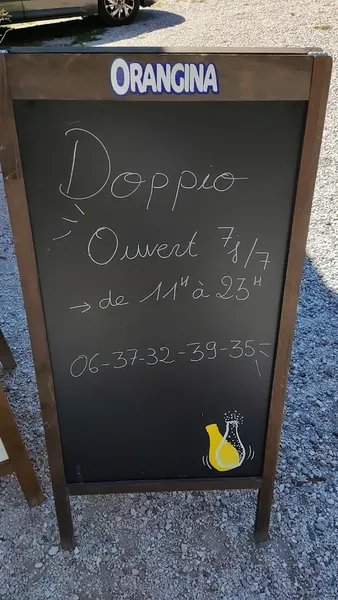 ORANGINA
Doppio
Ouvert 7j/7
→ de 11H à 23H
06-37-32-39-35